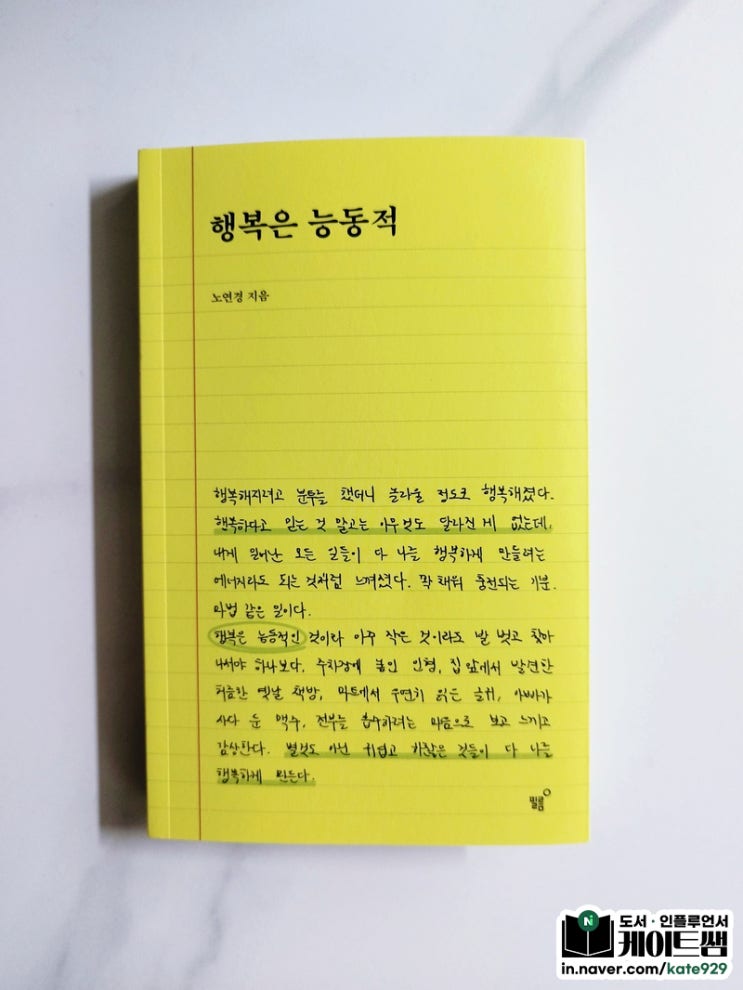 행복은 능동적
노연경 지음
행복해지려고 분투를 했더니 놀라울 정도로 행복해졌다.
행복하다고 믿는 것 말고는 아무것도 달라진 게 없는데,
내게 일어난 모든 일들이 다 나를 행복하게 만들려는
에너지라도 되는 것처럼 느껴졌다. 꽉 채워 충전되는 기분.
마법 같은 일이다.
행복은 능동적인 것이라 아주 작은 것이라도 발 벗고 찾아
나서야 하나보다. 주차장에 놓인 인형, 집 앞에서 발견한
허름한 옛날 책방, 마트에서 우연히 읽은 글귀, 아빠가
사다 둔 맥주, 전부를 흡수하려는 마음으로 보고 느끼고
감상한다. 별것도 아닌 귀엽고 하찮은 것들이 다 나를
행복하게 만든다.
필름
도서 · 인플루언서
케이트쌤
in.naver.com/kate929